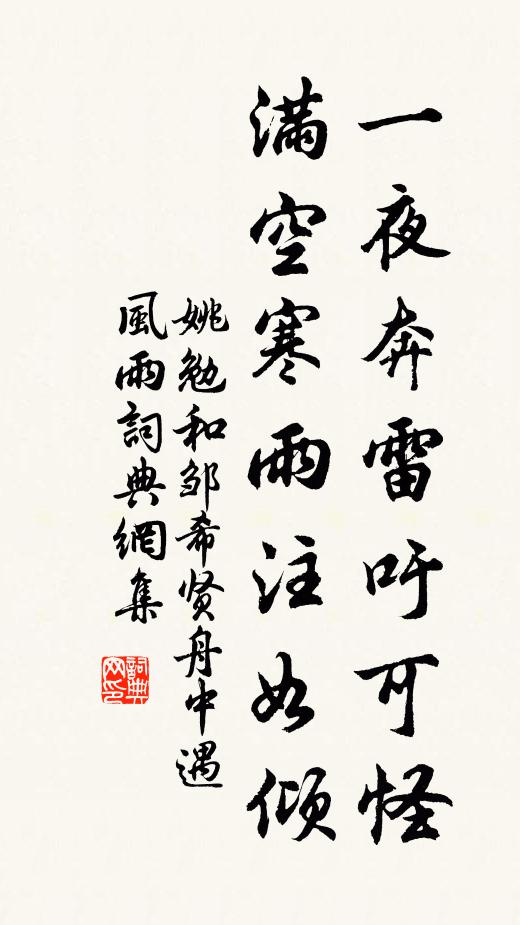 一夜奔雷吁可怪
满空寒雨注如倾
姚勉和邹希贤舟中遇
風雨詞典網集
詞典网印